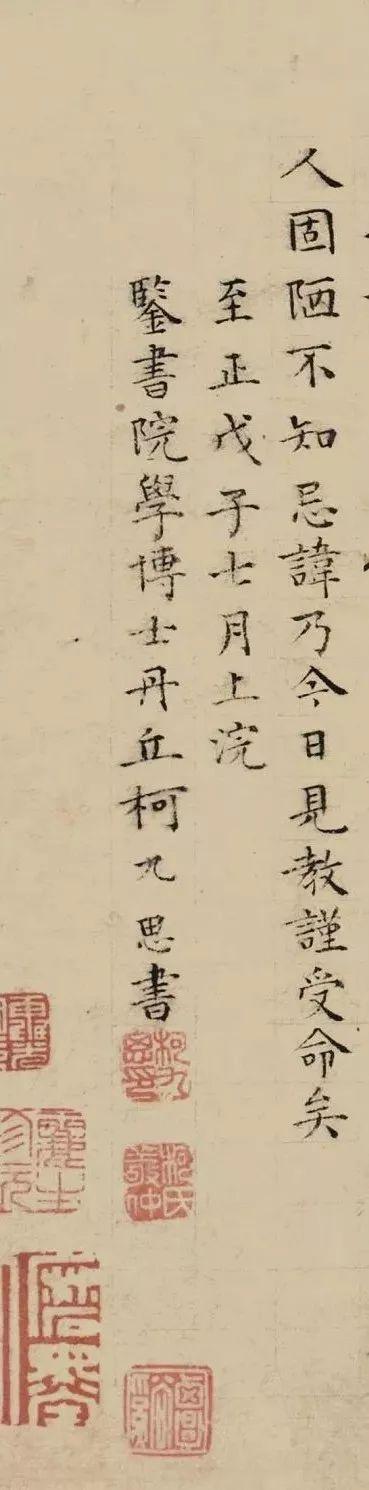 人固陋不知忌諱乃今日見教謹受命矣
至正戊子七月上浣
鑒書院學博士丹丘柯九思書
柯九思印
柯氏敬仲